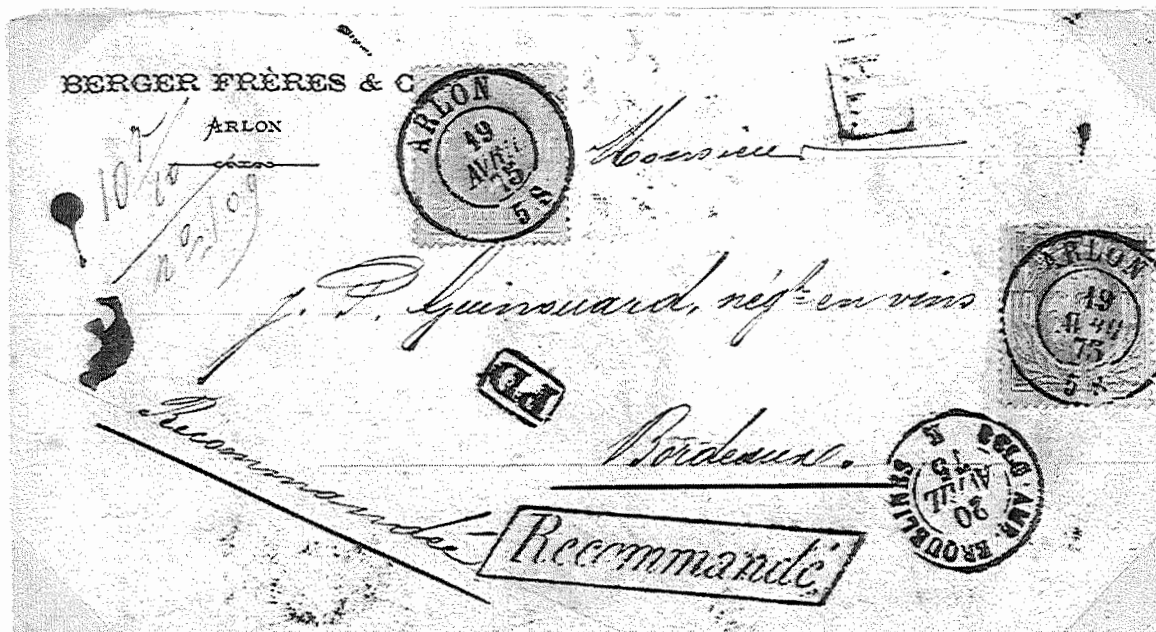 BERGER FRÈRES & C
ARLON
ARLON
19
AVRIL
75
5 S
Monsieur
J. P. Guinouard, négt en vins
ARLON
19
75
5 S
PD
Bordeaux.
Recommandée
Recommandé
BELG. A ERQUELINES
20
AVRIL
75